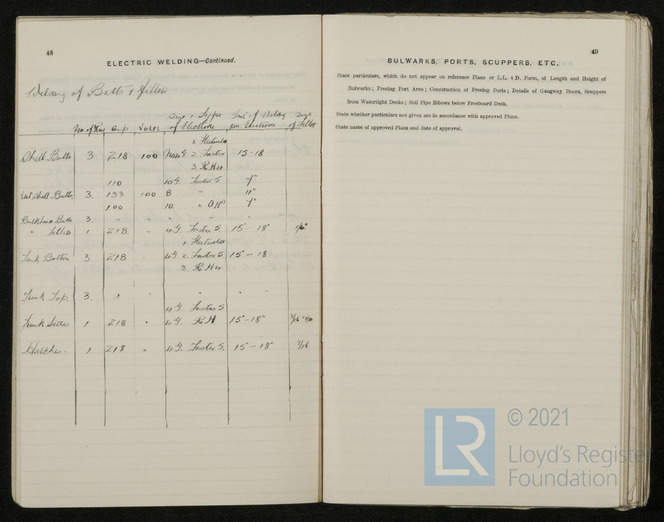 48
ELECTRIC WELDING—Continued.
Welding of Butts & Fillets
No of Run Amp Volts Size & Types of Electrode Size of Welding per Electrode Size of Fillet
Shell Butts 3. 218 100 2. Fastex 15-18
3.
110 10G. Fastex 5 7"
Shell Butts 3. 133 100 8 " 11"
100 10. " 7"
Bulkhead Butts 3. " " " "
" 1 218 " Fastex 5. 15" 18"
Tank Bottom 3 218 2. Fastex 5 15" - 18
3.
Trunk Top. 3. " "
Fastex 5
Trunk Sides 1 218 " 15" - 18"
Hatches. 1 218 " Fastex 5. 15" - 18" 3/16
49
BULWARKS, PORTS, SCUPPERS, ETC.
State particulars, which do not appear on reference Plans or L.L. 4 D. Form, of Length and Height of
Bulwarks; Freeing Port Area; Construction of Freeing Ports; Details of Gangway Doors, Scuppers
from Watertight Decks; Soil Pipe Elbows below Freeboard Deck.
State whether particulars not given are in accordance with approved Plans.
State name of approved Plans and date of approval.
© 2021
LR
Lloyd's Register
Foundation